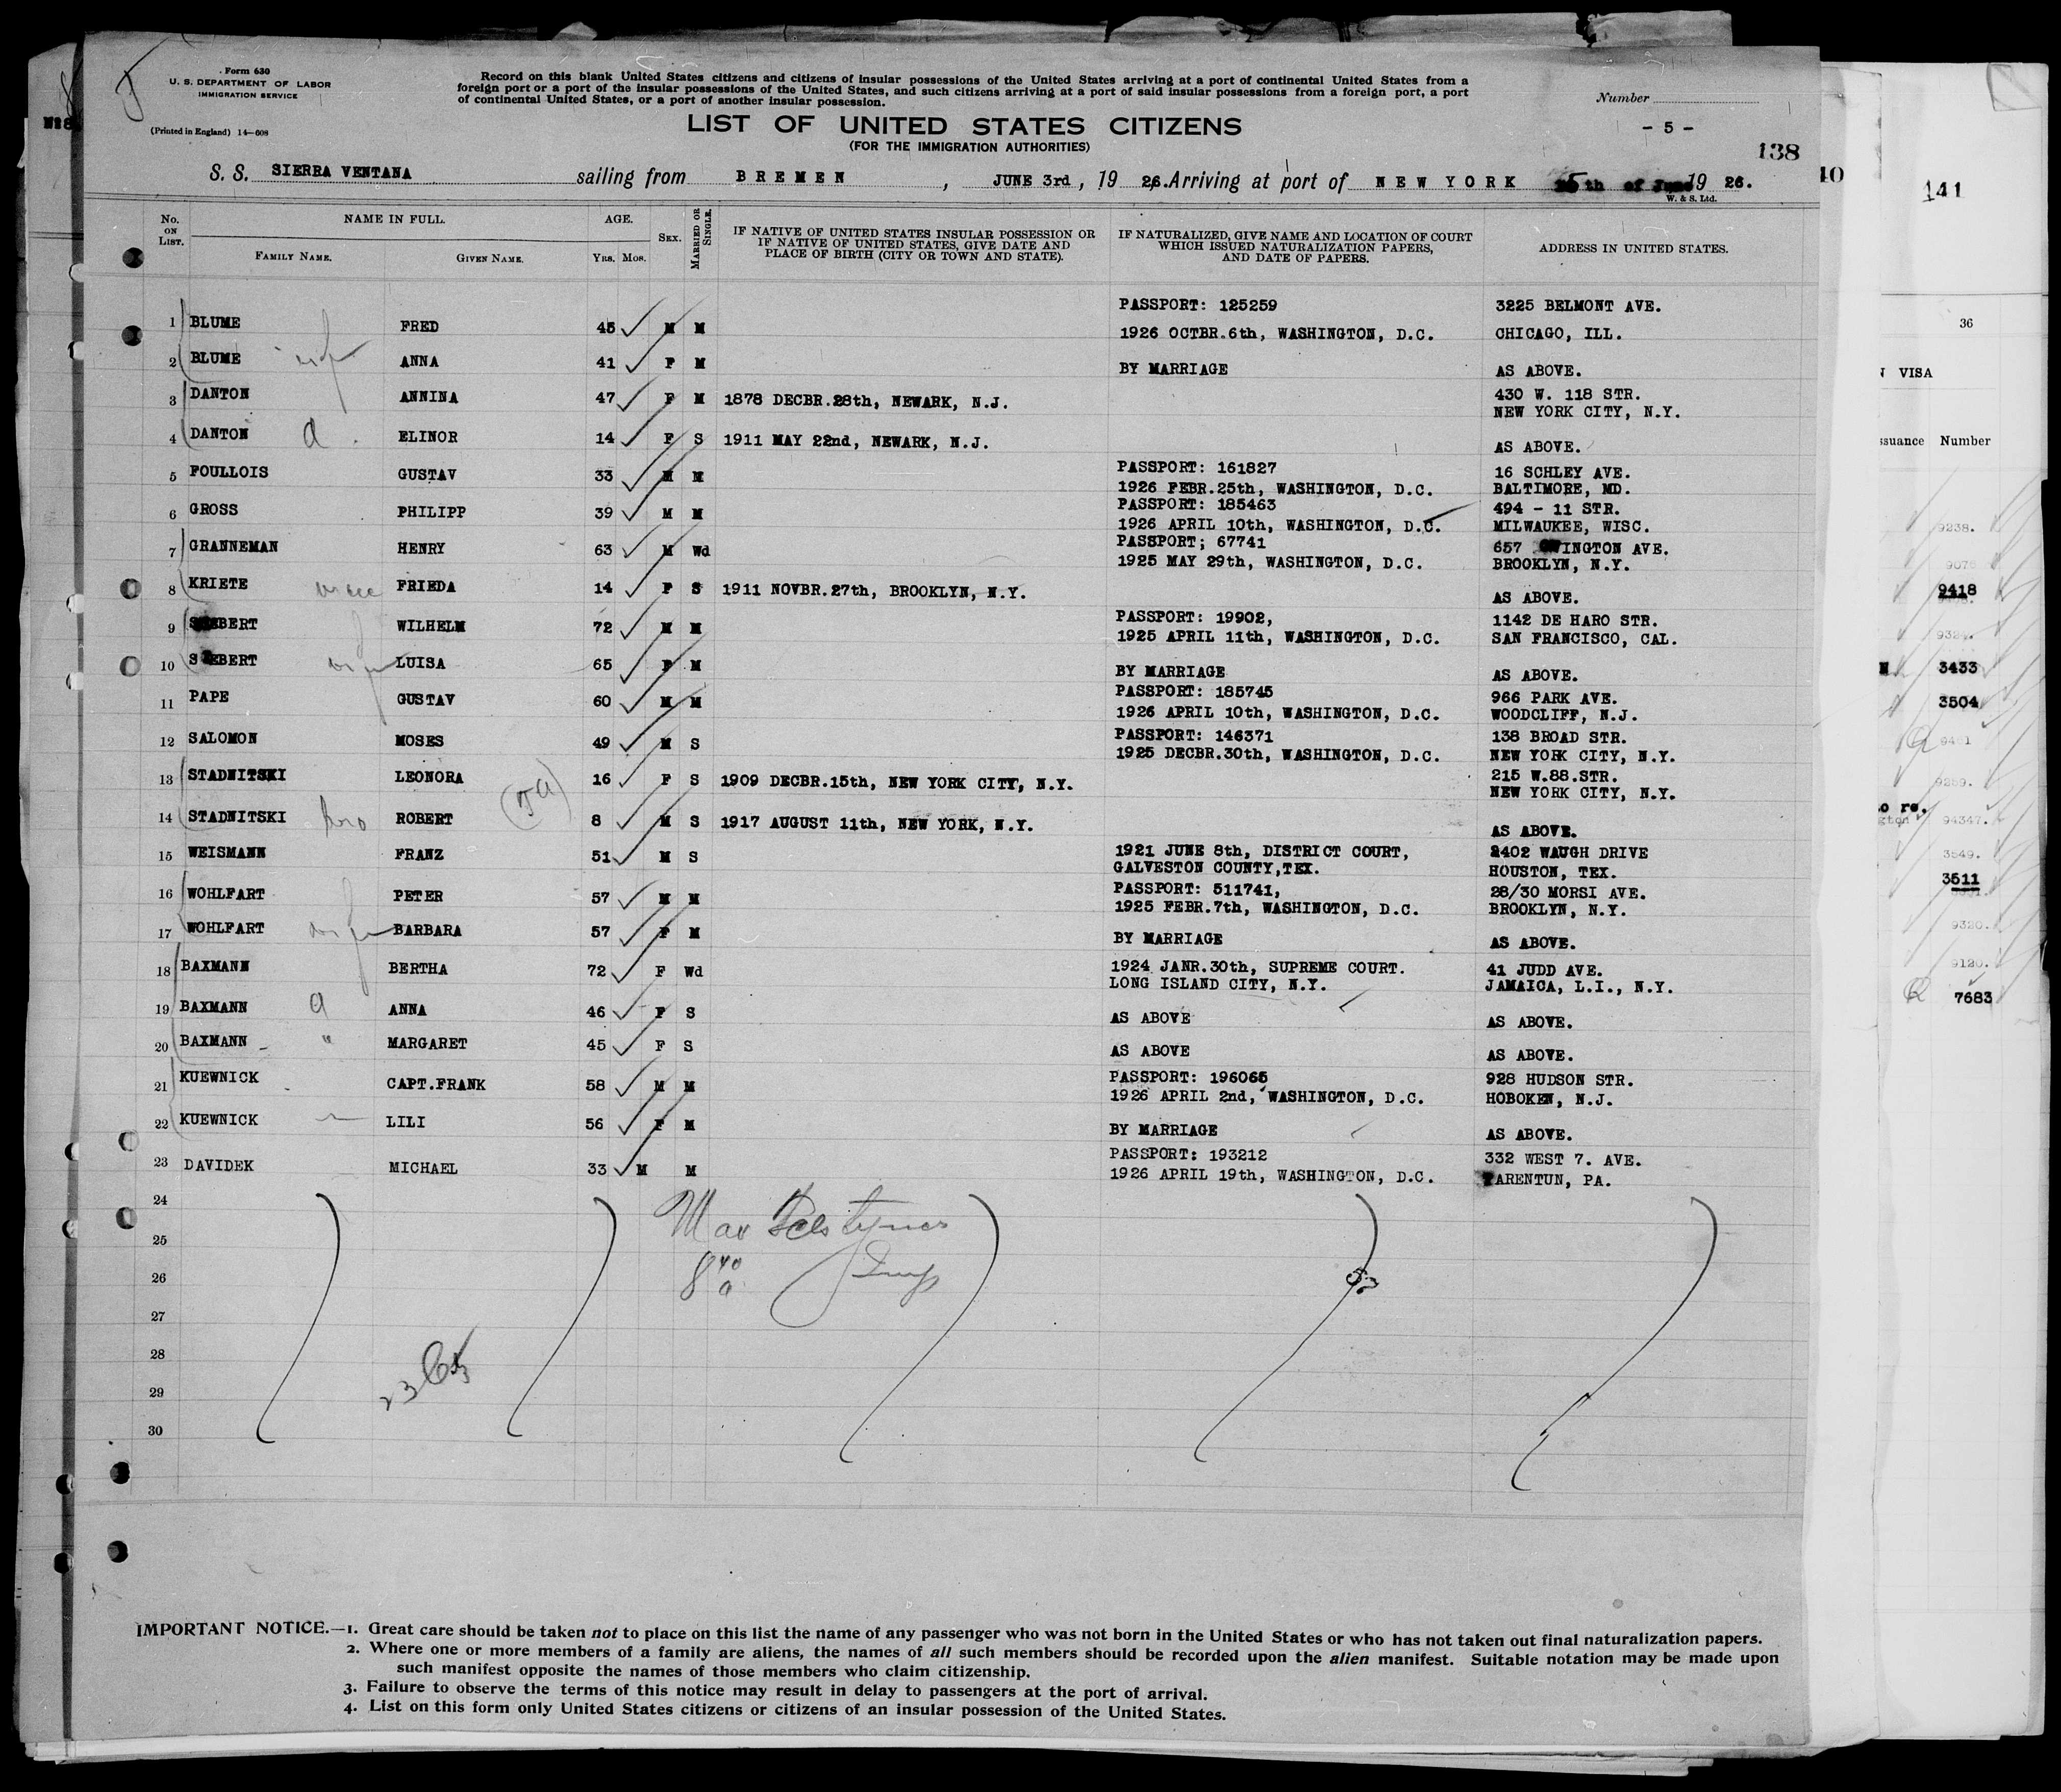 Form 630
U. S. DEPARTMENT OF LABOR
IMMIGRATION SERVICE
(Printed in England) 14—608
Record on this blank United States citizens and citizens of insular possessions of the United States arriving at a port of continental United States from a
foreign port or a port of the insular possessions of the United States, and such citizens arriving at a port of said insular possessions from a foreign port, a port
of continental United States, or a port of another insular possession.
Number
LIST OF UNITED STATES CITIZENS
(FOR THE IMMIGRATION AUTHORITIES)
- 5 -
138
S. S. SIERRA VENTANA sailing from BREMEN, JUNE 3rd, 19 26. Arriving at port of NEW YORK 5th of June 19 26.
W. & S. Ltd.
No. ON LIST. NAME IN FULL. AGE. SEX. MARRIED OR SINGLE. IF NATIVE OF UNITED STATES INSULAR POSSESSION OR IF NATIVE OF UNITED STATES, GIVE DATE AND PLACE OF BIRTH (CITY OR TOWN AND STATE). IF NATURALIZED, GIVE NAME AND LOCATION OF COURT WHICH ISSUED NATURALIZATION PAPERS, AND DATE OF PAPERS. ADDRESS IN UNITED STATES.
FAMILY NAME. GIVEN NAME. YRS. MOS.
PASSPORT: 125259 3225 BELMONT AVE.
1 BLUME FRED 45 M M 1926 OCTBR.6th, WASHINGTON, D.C. CHICAGO, ILL.
2 BLUME wife ANNA 41 F M BY MARRIAGE AS ABOVE.
3 DANTON ANNINA 47 F M 1878 DECBR.28th, NEWARK, N.J. 430 W. 118 STR.
NEW YORK CITY, N.Y.
4 DANTON d. ELINOR 14 F S 1911 MAY 22nd, NEWARK, N.J. AS ABOVE.
5 FOULLOIS GUSTAV 33 M M PASSPORT: 161827 16 SCHLEY AVE.
1926 FEBR.25th, WASHINGTON, D.C. BALTIMORE, MD.
6 GROSS PHILIPP 39 M M PASSPORT: 185463 494 - 11 STR.
1926 APRIL 10th, WASHINGTON, D.C. MILWAUKEE, WISC.
7 GRANNEMAN HENRY 63 M Wd PASSPORT; 67741 657 INGTON AVE.
1925 MAY 29th, WASHINGTON, D.C. BROOKLYN, N.Y.
8 KRIETE niece FRIEDA 14 F S 1911 NOVBR.27th, BROOKLYN, N.Y. AS ABOVE.
9 S EBERT WILHELM 72 M M PASSPORT: 19902, 1142 DE HARO STR.
1925 APRIL 11th, WASHINGTON, D.C. SAN FRANCISCO, CAL.
10 S EBERT wife LUISA 65 F M BY MARRIAGE AS ABOVE.
11 PAPE GUSTAV 60 M M PASSPORT: 185745 966 PARK AVE.
1926 APRIL 10th, WASHINGTON, D.C. WOODCLIFF, N.J.
12 SALOMON MOSES 49 M S PASSPORT: 146371 138 BROAD STR.
1925 DECBR.30th, WASHINGTON, D.C. NEW YORK CITY, N.Y.
13 STADNITSKI LEONORA 16 F S 1909 DECBR.15th, NEW YORK CITY, N.Y. 215 W.88.STR.
NEW YORK CITY, N.Y.
14 STADNITSKI bro ROBERT 8 M S 1917 AUGUST 11th, NEW YORK, N.Y. AS ABOVE.
15 WEISMANN FRANZ 51 M S 1921 JUNE 8th, DISTRICT COURT, 2402 WAUGH DRIVE
GALVESTON COUNTY,TEX. HOUSTON, TEX.
16 WOHLFART PETER 57 M M PASSPORT: 511741, 28/30 MORSI AVE.
1925 FEBR.7th, WASHINGTON, D.C. BROOKLYN, N.Y.
17 WOHLFART wife BARBARA 57 F M BY MARRIAGE AS ABOVE.
18 BAXMANN BERTHA 72 F Wd 1924 JANR.30th, SUPREME COURT. 41 JUDD AVE.
LONG ISLAND CITY, N.Y. JAMAICA, L.I., N.Y.
19 BAXMANN d ANNA 46 F S AS ABOVE AS ABOVE.
20 BAXMANN " MARGARET 45 F S AS ABOVE AS ABOVE.
21 KUEWNICK CAPT.FRANK 58 M M PASSPORT: 196065 928 HUDSON STR.
1926 APRIL 2nd, WASHINGTON, D.C. HOBOKEN, N.J.
22 KUEWNICK LILI 56 F M BY MARRIAGE AS ABOVE.
23 DAVIDEK MICHAEL 33 M M PASSPORT: 193212 332 WEST 7. AVE.
1926 APRIL 19th, WASHINGTON, D.C. TARENTUN, PA.
24
25
26
27
28
29
30
Max
Insp
IMPORTANT NOTICE.—1. Great care should be taken not to place on this list the name of any passenger who was not born in the United States or who has not taken out final naturalization papers.
2. Where one or more members of a family are aliens, the names of all such members should be recorded upon the alien manifest. Suitable notation may be made upon
such manifest opposite the names of those members who claim citizenship.
3. Failure to observe the terms of this notice may result in delay to passengers at the port of arrival.
4. List on this form only United States citizens or citizens of an insular possession of the United States.
10
141
36
VISA
ssuance Number
9238.
9418
3433
3504
9259.
94347.
3549.
3511
9320.
9120.
7683